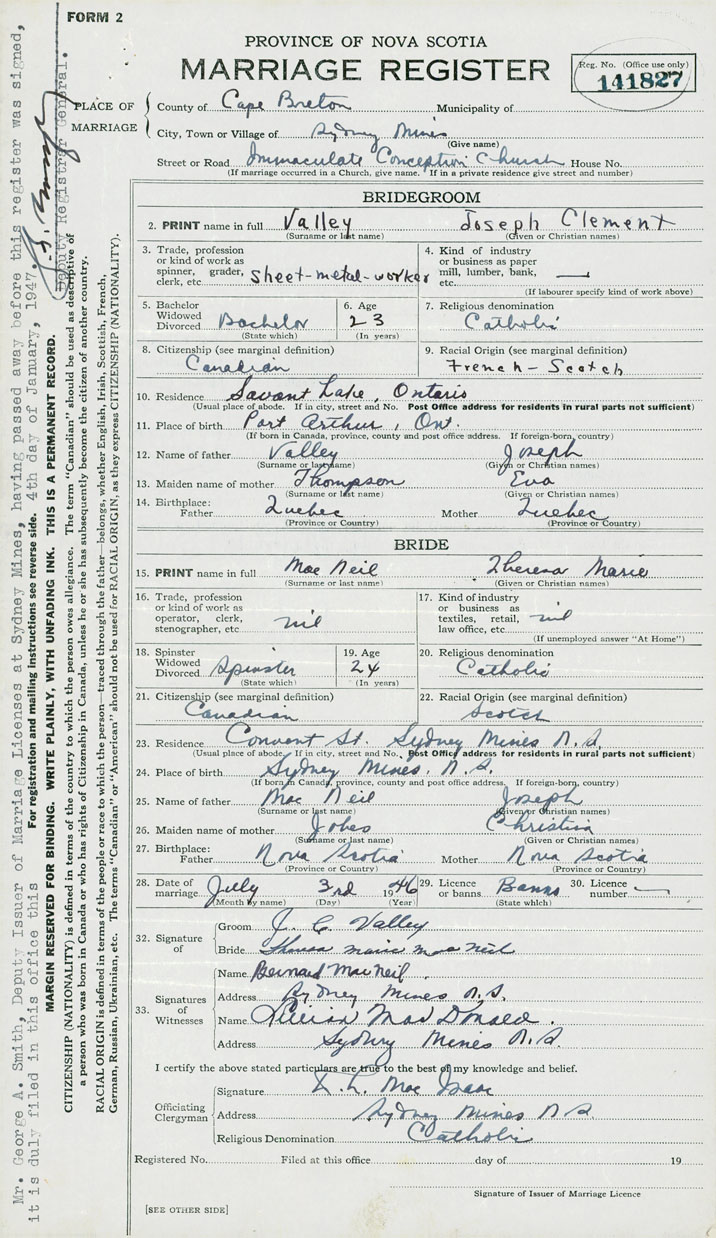 FORM 2
PROVINCE OF NOVA SCOTIA
MARRIAGE REGISTER
Reg. No. (Office use only)
141827
PLACE OF MARRIAGE
County of Cape Breton Municipality of
City, Town or Village of Sydney Mines
(Give name)
Street or Road Immaculate Conception Church House No.
(If marriage occurred in a Church, give name. If in a private residence give street and number)
BRIDEGROOM
2. PRINT name in full Valley Joseph Clement
(Surname or last name) (Given or Christian names)
3. Trade, profession or kind of work as spinner, grader, clerk, etc. Sheet-metal-worker
4. Kind of industry or business as paper mill, lumber, bank, etc. —
(If labourer specify kind of work above)
5. Bachelor Widowed Divorced Bachelor
(State which)
6. Age 23
(In years)
7. Religious denomination
Catholic
8. Citizenship (see marginal definition)
Canadian
9. Racial Origin (see marginal definition)
French-Scotch
10. Residence Savant Lake, Ontario
(Usual place of abode. If in city, street and No. Post Office address for residents in rural parts not sufficient)
11. Place of birth Port Arthur, Ont.
(If born in Canada, province, county and post office address. If foreign-born, country)
12. Name of father Valley Joseph
(Surname or last name) (Given or Christian names)
13. Maiden name of mother Thompson Eva
(Surname or last name) (Given or Christian names)
14. Birthplace: Father Quebec Mother Quebec
(Province or Country) (Province or Country)
BRIDE
15. PRINT name in full Mac Neil Theresa Marie
(Surname or last name) (Given or Christian names)
16. Trade, profession or kind of work as operator, clerk, stenographer, etc nil
17. Kind of industry or business as textiles, retail, law office, etc. nil
(If unemployed answer "At Home")
18. Spinster Widowed Divorced Spinster
(State which)
19. Age 24
(In years)
20. Religious denomination
Catholic
21. Citizenship (see marginal definition)
Canadian
22. Racial Origin (see marginal definition)
Scotch
23. Residence Convent St. Sydney Mines N.S.
(Usual place of abode. If in city, street and No. Post Office address for residents in rural parts not sufficient)
24. Place of birth Sydney Mines. N.S.
(If born in Canada, province, county and post office address. If foreign-born, country)
25. Name of father Mac Neil Joseph
(Surname or last name) (Given or Christian names)
26. Maiden name of mother Jobes Christina
(Surname or last name) (Given or Christian names)
27. Birthplace: Father Nova Scotia Mother Nova Scotia
(Province or Country) (Province or Country)
28. Date of marriage July 3rd 1946 29. Licence or banns Banns 30. Licence number —
(Month by name) (Day) (Year) (State which)
32. Signature of
Groom J. C. Valley
Bride Theresa Marie Mac Neil
33. Signatures of Witnesses
Name Bernard MacNeil.
Address Sydney Mines N.S.
Name Lillian MacDonald.
Address Sydney Mines N.S.
I certify the above stated particulars are true to the best of my knowledge and belief.
Officiating Clergyman
Signature Mac Isaac
Address Sydney Mines N S
Religious Denomination Catholic
Registered No. Filed at this office day of 19
Signature of Issuer of Marriage Licence
[SEE OTHER SIDE]
Mr. George A. Smith, Deputy Issuer of Marriage Licenses at Sydney Mines, having passed away before this register was signed,
it is duly filed in this office this 4th day of January, 1947.
Deputy Registrar General.
For registration and mailing instructions see reverse side.
MARGIN RESERVED FOR BINDING. WRITE PLAINLY, WITH UNFADING INK. THIS IS A PERMANENT RECORD.
CITIZENSHIP (NATIONALITY) is defined in terms of the country to which the person owes allegiance. The term "Canadian" should be used as descriptive of
a person who was born in Canada or who has rights of Citizenship in Canada, unless he or she has subsequently become the citizen of another country.
RACIAL ORIGIN is defined in terms of the people or race to which the person—traced through the father—belongs, whether English, Irish, Scottish, French,
German, Russian, Ukrainian, etc. The terms "Canadian" or "American" should not be used for RACIAL ORIGIN, as they express CITIZENSHIP (NATIONALITY).